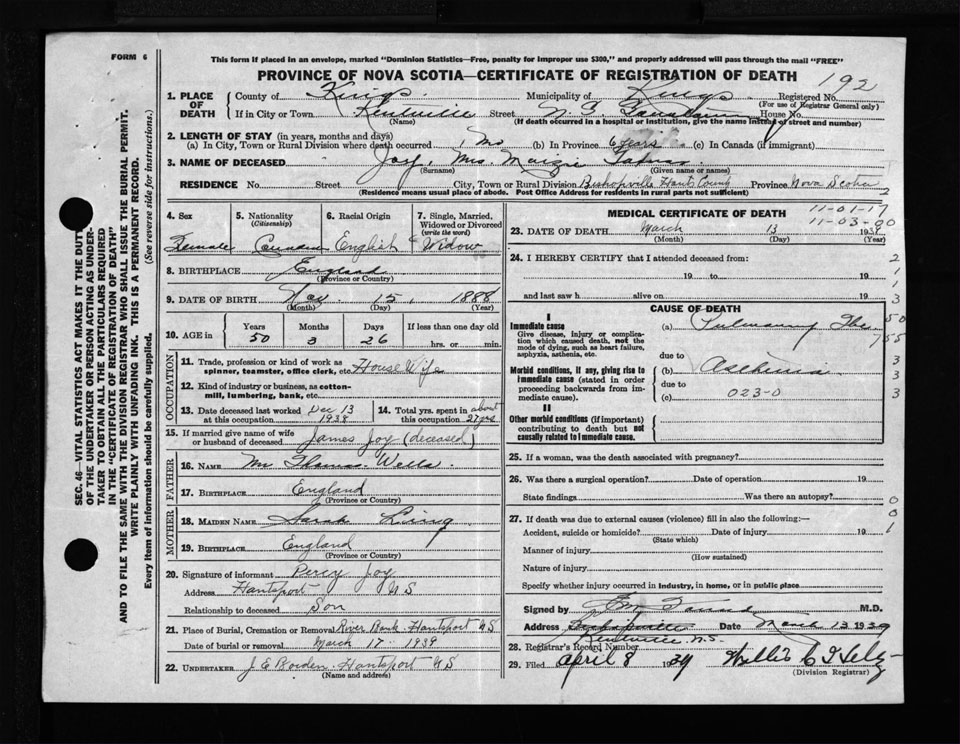 FORM 6
This form if placed in an envelope, marked "Dominion Statistics—Free, penalty for improper use $300," and properly addressed will pass through the mail "FREE"
PROVINCE OF NOVA SCOTIA—CERTIFICATE OF REGISTRATION OF DEATH
192
1. PLACE OF DEATH County of Kings Municipality of Kings Registered No.
(For use of Registrar General only)
If in City or Town Kentville Street N. S. House No.
(Name) (If death occurred in a hospital or institution, give the name instead of street and number)
2. LENGTH OF STAY (in years, months and days)
(a) In City, Town or Rural Division where death occurred 1 Mo (b) In Province 6 years (c) In Canada (if immigrant)
3. NAME OF DECEASED Joy, Mrs.
(Surname) (Given name or names)
RESIDENCE No. Street City, Town or Rural Division Bishopville Hants County Province Nova Scotia
(Residence means usual place of abode. Post Office Address for residents in rural parts not sufficient)
2
4. Sex Female
5. Nationality (Citizenship)
6. Racial Origin English
7. Single, Married, Widowed or Divorced (write the word) Widow
8. BIRTHPLACE England
(Province or Country)
9. DATE OF BIRTH 15, 1888
(Month) (Day) (Year)
10. AGE in Years 50 Months 3 Days 26 If less than one day old hrs. or min.
OCCUPATION
11. Trade, profession or kind of work as spinner, teamster, office clerk, etc. House Wife
12. Kind of industry or business, as cotton-mill, lumbering, bank, etc.
13. Date deceased last worked at this occupation Dec 13 1938
14. Total yrs. spent in this occupation about 27 yrs
15. If married give name of wife or husband of deceased James Joy (deceased)
FATHER
16. NAME Mr Thomas Wells.
17. BIRTHPLACE England
(Province or Country)
MOTHER
18. MAIDEN NAME Sarah
19. BIRTHPLACE England
(Province or Country)
20. Signature of informant Percy Joy
Address Hantsport NS
Relationship to deceased Son
21. Place of Burial, Cremation or Removal River Bank Hantsport NS
Date of burial or removal March 17 1939
22. UNDERTAKER J E Borden Hantsport NS
(Name and address)
MEDICAL CERTIFICATE OF DEATH
11-01-17
11-03-90
23. DATE OF DEATH March 13 1939
(Month) (Day) (Year)
24. I HEREBY CERTIFY that I attended deceased from:
19 to 19
and last saw h alive on 19
2
1
3
CAUSE OF DEATH
I
Immediate cause
Give disease, injury or complication which caused death, not the mode of dying, such as heart failure, asphyxia, asthenia, etc.
(a) Pulmonary Tbc
50
755
due to
Morbid conditions, if any, giving rise to immediate cause (stated in order proceeding backwards from immediate cause).
(b) Asthenia
due to
(c) 023-0
3
3
3
II
Other morbid conditions (if important) contributing to death but not causally related to immediate cause.
25. If a woman, was the death associated with pregnancy?
26. Was there a surgical operation? Date of operation 19
State findings Was there an autopsy?
0
0
1
27. If death was due to external causes (violence) fill in also the following:—
Accident, suicide or homicide? Date of injury 19
(State which)
Manner of injury
(How sustained)
Nature of injury
Specify whether injury occurred in industry, in home, or in public place
Signed by M.D.
Address Date March 13 1939
Kentville N.S.
28. Registrar's Record Number
29. Filed April 8 1939 Willis
(Division Registrar)
SEC. 46—VITAL STATISTICS ACT MAKES IT THE DUTY OF THE UNDERTAKER OR PERSON ACTING AS UNDERTAKER TO OBTAIN ALL THE PARTICULARS REQUIRED IN THE "CERTIFICATE OF REGISTRATION OF DEATH"
AND TO FILE THE SAME WITH THE DIVISION REGISTRAR WHO SHALL ISSUE THE BURIAL PERMIT.
WRITE PLAINLY WITH UNFADING INK. THIS IS A PERMANENT RECORD.
Every item of information should be carefully supplied. (See reverse side for instructions.)